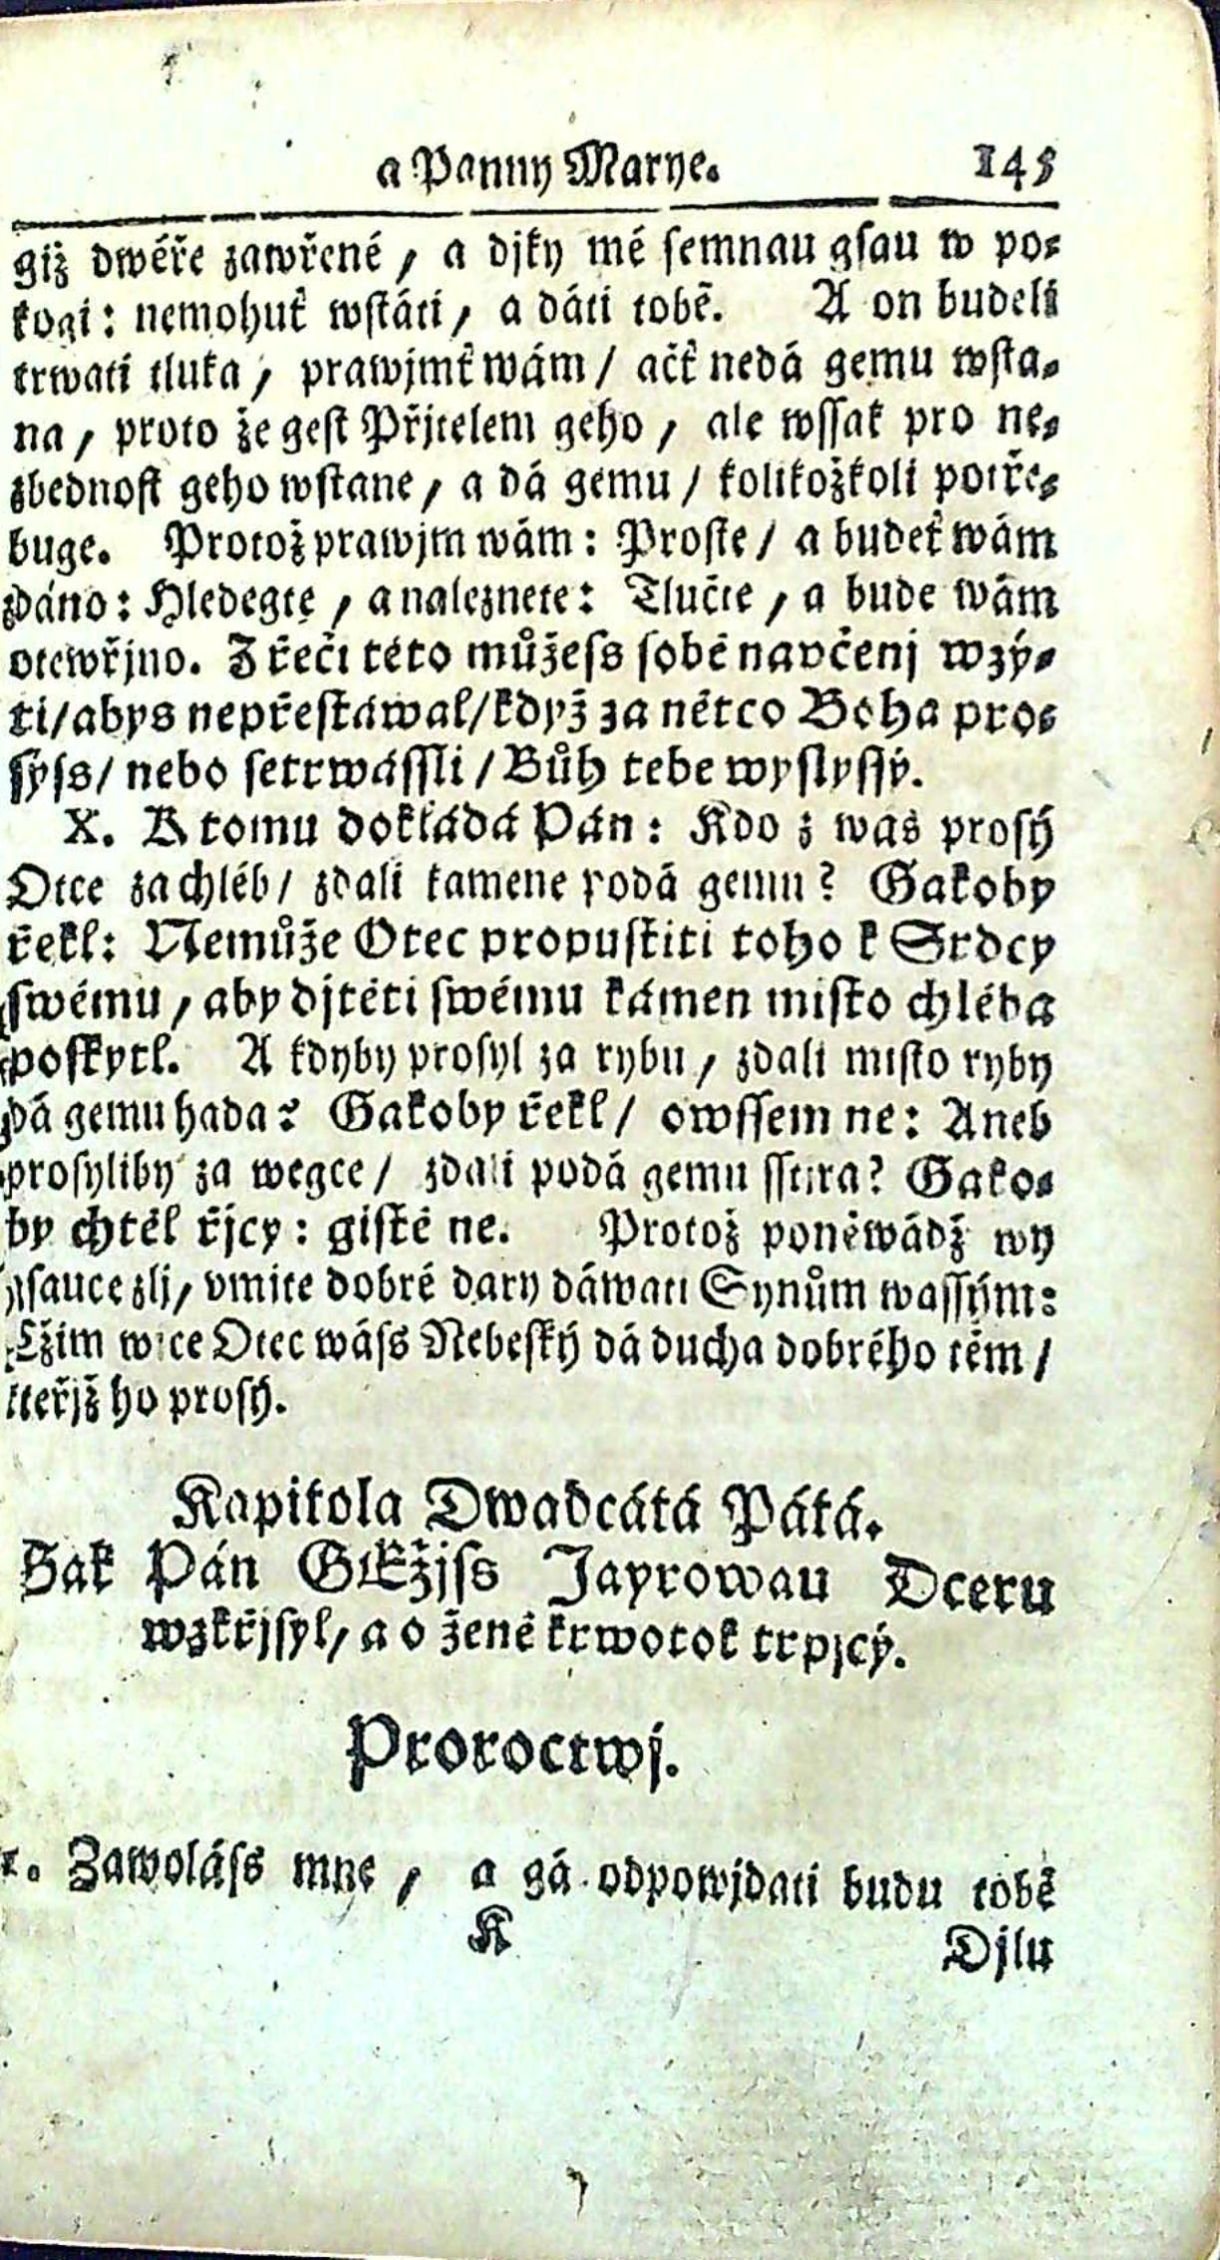 a Panny Marye. 145
giž dwéře zawřené / a djky mé semnau gsau w po-
kogi: nemohuť wstáti / a dáti tobě. A on budeli
trwati tluka / prawjmť wám / ačť nedá gemu wsta-
na / proto že gest Přjtelem geho / ale wssak pro ne-
zbednost geho wstane / a dá gemu / kolikožkoli potře-
buge. Protož prawjm wám: Proste / a budeť wám
dáno: Hledegte / a naleznete: Tlučte / a bude wám
otewřjno. Z řeči této můžess sobě naučenj wzý-
ti / abys nepřestáwal / když za nětco Boha pro-
sýss / nebo setrwássli / Bůh tebe wyslyssý.
X. K tomu dokládá Pán: Kdo z was prosý
Otce za chléb / zdali kamene podá gemu? Gakoby
řekl: Nemůže Otec propustiti toho k Srdcy
swému / aby djtěti swému kámen misto chléba
poskytl. A kdyby prosyl za rybu / zdali misto ryby
dá gemu hada? Gakoby řekl / owssem ne: Aneb
prosyliby za wegce / zdali podá gemu sstjra? Gako-
by chtěl řjcy: gistě ne. Protož poněwádž wy
gsauce zlj / vmite dobré dary dáwati Synům wassým:
Čžim wice Otec wáss Nebeský dá ducha dobrého těm /
kteřjž ho prosý.
Kapitola Dwadcátá Pátá.
Gak Pán GEžjss Jayrowau Dceru
wzkřjsyl / a o ženě krwotok trpjcý.
Proroctwj.
1. Zawoláss mne / a gá odpowjdati budu tobě
K Djlu